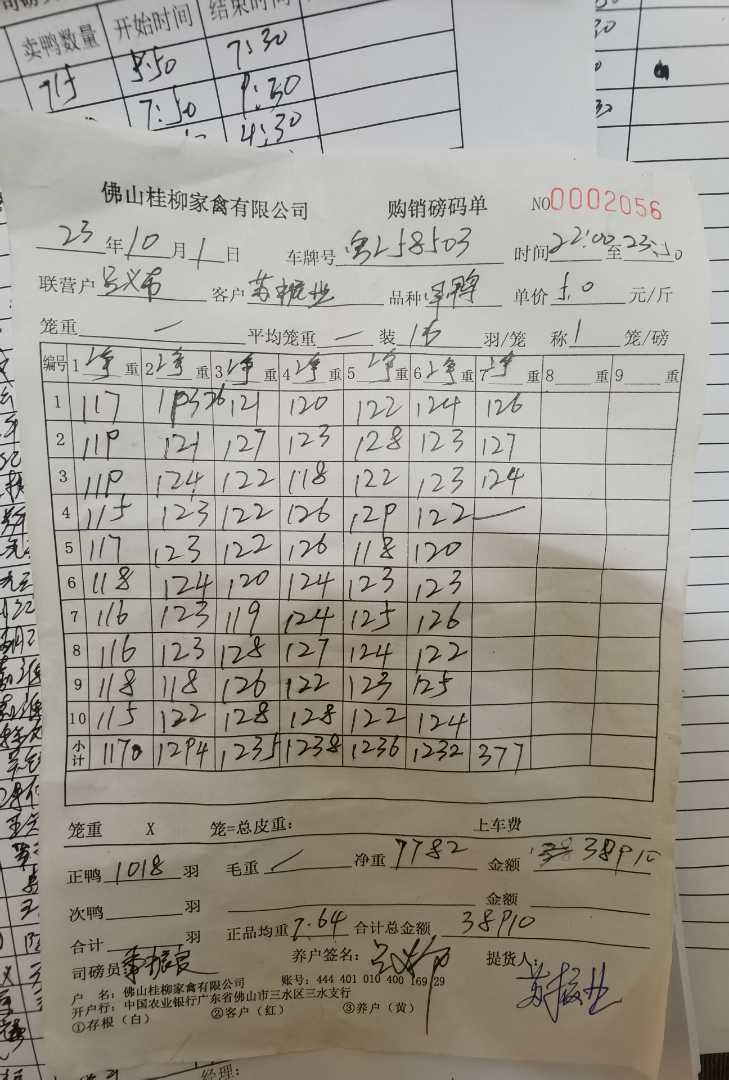 卖鸭数量 开始时间 结束时间
715 5:50 7:30
7:50 9:30
4:30
佛山桂柳家禽有限公司 购销磅码单 NO0002056
23年10月1日 车牌号 粤L58503 时间22:00至23:50
联营户 客户 苏振业 品种: 单价 5.0 元/斤
笼重 — 平均笼重 — 装 16 羽/笼 称 1 笼/磅
编号 1 净 重 2 净 重 3 净 重 4 净 重 5 净 重 6 净 重 7 净 重 8 重 9 重
1 117 26 121 120 122 124 126
2 119 121 127 123 128 123 127
3 119 124 122 118 122 123 124
4 115 123 122 126 129 122 —
5 117 123 122 126 118 120
6 118 124 120 124 123 123
7 116 123 119 124 125 126
8 116 123 128 127 124 122
9 118 118 126 122 123 125
10 115 122 128 128 122 124
小计 1170 1294 1235 1238 1236 1232 377
笼重 X 笼=总皮重: 上车费
正鸭 1018 羽 毛重 / 净重 7782 金额 38910
次鸭 羽 金额
合计 羽 正品均重 7.64 合计总金额 38910
司磅员 养户签名: 提货人: 苏振业
户 名: 佛山桂柳家禽有限公司 账号: 444 401 010 400 169 29
开户行: 中国农业银行广东省佛山市三水区三水支行
①存根（白） ②客户（红） ③养户（黄）
经理: